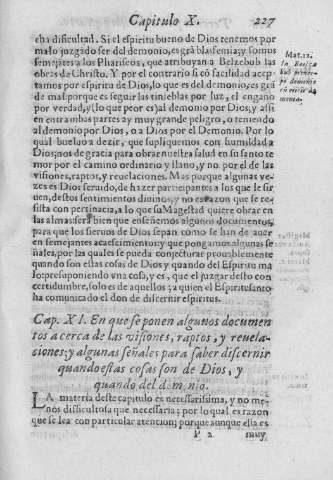 Capitulo X. 227
cha dificultad. Si el espiritu bueno de Dios tenemos por
malo juzgado ser del demonio, es grã blasfemia, y somos
semejãtes a los Phariseos, que atribuyan a Belzebub las
obras de Christo. Y por el contrario si cõ facilidad acep
tamos por espiritu de Dios, lo que es del demonio, es grã
de mal, porque es seguir las tinieblas por luz, el engaño
por verdad, y (lo que peor es) al demonio por Dios, y assi
en entrambas partes ay muy grande peligro, o teniendo
al demonio por Dios, o a Dios por el Demonio. Por lo
qual buelvo a dezir, que supliquemos con humildad a
Dios, nos de gracia para obrar nuestra salud en su santo te
mor por el camino ordinario y llano, y no por el de las
visiones, raptos, y revelaciones. Mas porque algunas ve-
zes es Dios seruido, de hazer participantes a los que le sir
uen, destos sentimientos diuinos, y no es razon que se re-
sista con pertinacia, a lo que su Magestad quiere obrar en
las almas: sera bien que enseñemos algunos documentos,
para que los sieruos de Dios sepan como se han de auer
en semejantes acaescimientos: y que pongamos algunas se
ñales, por las quales se pueda conjecturar prouablemente
quando son estas cosas de Dios y quando del Espiritu ma
lo: presuponiendo vna cosa, y es, que el juzgar desto con
certidumbre, solo es de aquellos, a quien el Espiritu santo
ha comunicado el don de discernir espiritus.
Mat. 12.
demonio
Cap. XI. En que se ponen algunos documen
tos acerca de las visiones, raptos, y reuela-
ciones: y algunas señales para saber discernir
quando estas cosas son de Dios, y
quando del demonio.
LA materia deste capitulo es necessarissima, y no me-
nos dificultosa que necessaria; por lo qual es razon
que se lea con particular atencion; porque aunque ella es
P 2 muy